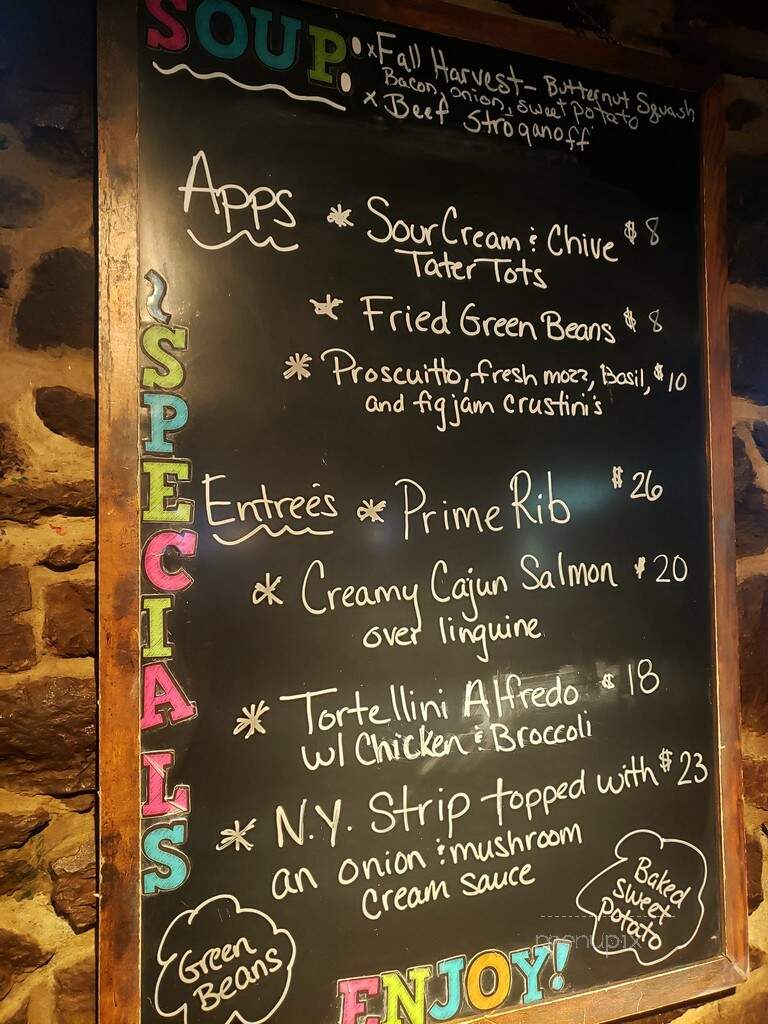 SOUP:
x Fall Harvest - Butternut Squash
Bacon, onion, sweet potato
x Beef Stroganoff
Apps
* Sour Cream & Chive $ 8
Tater Tots
* Fried Green Beans $ 8
* Proscuitto, fresh mozz, Basil, $ 10
and fig jam crustini's
~SPECIALS
Entreés * Prime Rib $ 26
* Creamy Cajun Salmon $ 20
over linguine
* Tortellini Alfredo $ 18
w/ Chicken & Broccoli
* N.Y. Strip topped with $ 23
an onion & mushroom
cream sauce
Green
Beans
Baked
Sweet
Potato
menupix
ENJOY!